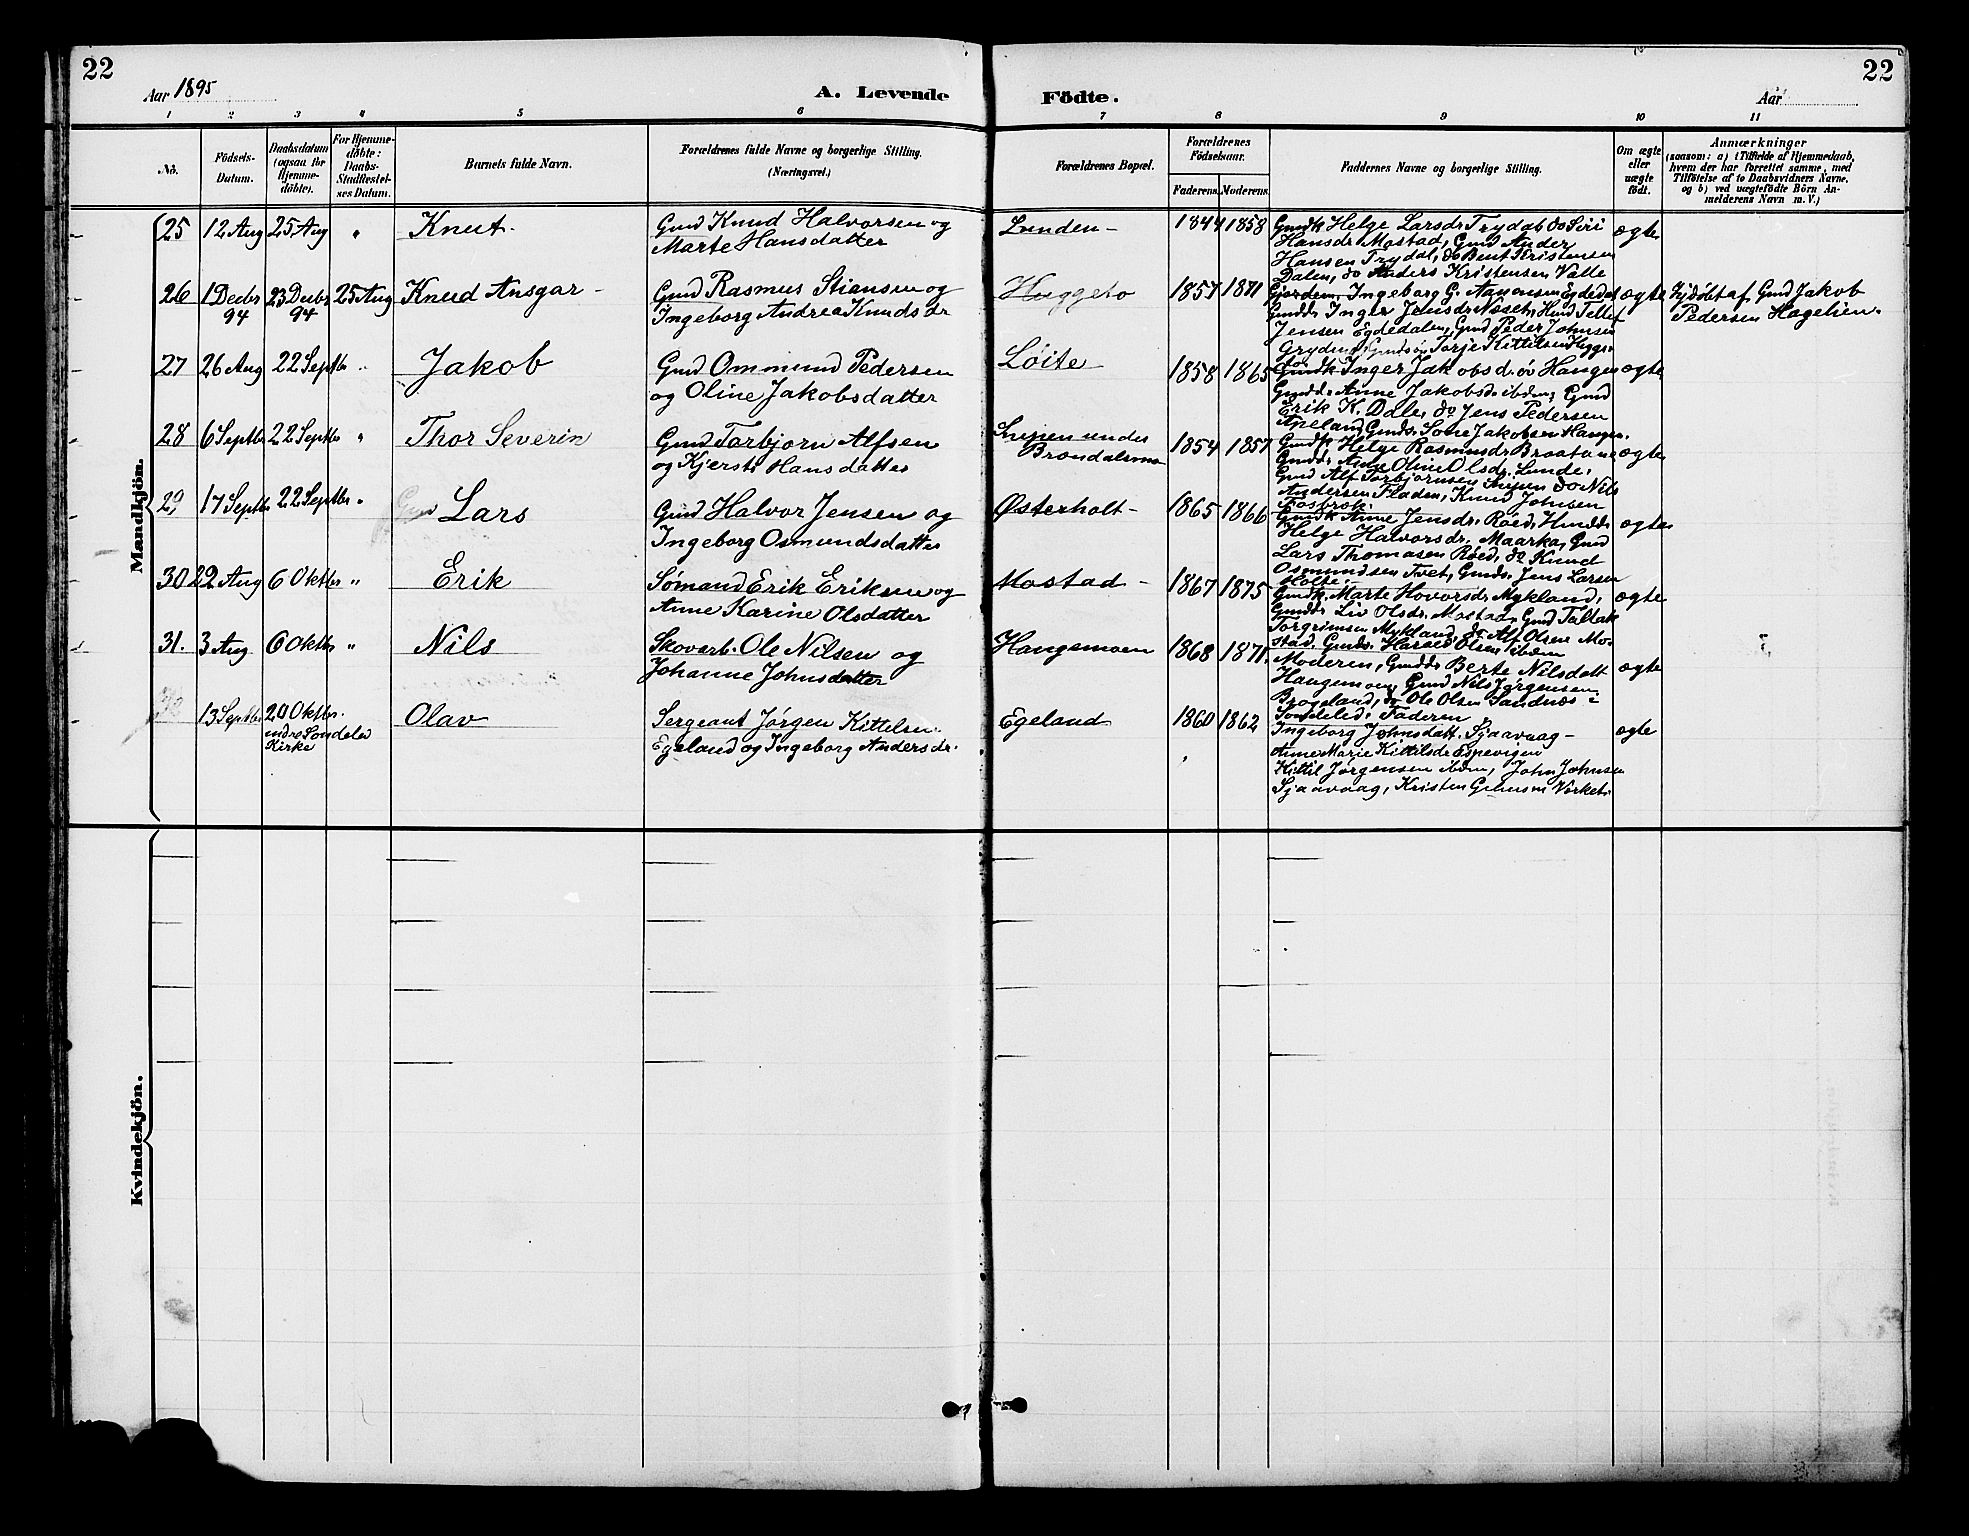 22
Aar 1895
A. Levende
Födte.
Aar
22
1 2 3 4 5 6 7 8 9 10 11
No.
Födsels-
Datum.
Daabsdatum
(ogsaa for
Hjemme-
döbte).
For Hjemme-
döbte:
Daabs-
Stadfæstel-
ses Datum.
Barnets fulde Navn.
Forældrenes fulde Navne og borgerlige Stilling.
(Næringsvei.)
Forældrenes Bopæl.
Forældrenes
Födselsaar.
Faderens. Moderens.
Faddernes Navne og borgerlige Stilling.
Om ægte
eller
uægte
födt.
Anmærkninger
(saasom: a) i Tilfælde af Hjemmedaab,
hvem der har forrettet samme, med
Tilföielse af to Daabsvidners Navne,
og b) ved uægtefödte Börn An-
melderens Navn m. V.)
Mandkjön.
25 12 Aug 25 Aug " Knut.
Gmd Knud Halvorsen og
Marte Hansdatter
Lunden
1844 1858
Gmdk Helge Larsdr Trydal do Siri
Hansdr Mostad, Gmd Ander
Hansen Trydal, do Bent Kristensen
Dalen, do Anders Kristensen Valle
ægte
26 1 Decbr 94 23 Decbr 94 25 Aug Knud Ansgar
Gmd Rasmus Stiansen og
Ingeborg Andrea Knudsdr
Huggeto
1857 1871
Gjordem. Ingeborg G. Aanonsen Egdedal
Gmdd. Inger Jensdr Næset, Hmd Tellef
Jensen Egdedalen, Gmd Peder Johnsen
Gryden, Gmdsøn Torje Kittilsen Hegge-
to
ægte
Hjdöbt af Gmd Jakob
Pedersen Hagelien.
27 26 Aug 22 Septbr " Jakob
Gmd Ommund Pedersen
og Oline Jakobsdatter
Løite
1858 1865
Gmdk Inger Jakobsd. øv Haugen
Gmdd. Anne Jakobsd. ibdm, Gmd
Erik K. Dale, do Jens Pedersen
Apeland, Gmds. Sone Jakobsen Haugen.
ægte
28 6 Septbr 22 Septbr " Thor Severin
Gmd Torbjorn Alfsen
og Kjersti Hansdatter
under
Brøndalsmo
1854 1857
Gmdk Helge Rasmusdr Braatane
Gmdd. Anne Oline Olsdr. Lunde.
Gmd Alf Torbjörnsen do Nils
Andersen Fladen, Knud Johnsen
Fosbrok.
ægte
29 17 Septbr 22 Septbr " Lars
Gmd Halvor Jensen og
Ingeborg Osmundsdatter
Østerholt
1865 1866
Gmdk Anne Jensdr. Røed, Hmdd.
Helge Halvorsdr. Maarka, Gmd
Lars Thomasen Røed, do Knud
Osmundsen Tvet, Gmds. Jens Larsen
Holte.
ægte
30 22 Aug 6 Oktbr " Erik
Sømand Erik Eriksen og
Anne Karine Olsdatter
Mostad
1867 1875
Gmdk. Marte Hovorsdr Mykland,
Gmdd. Liv Olsdr. Mostad, Gmd Tallak
Torgrimsen Mykland, do Alf Olsen Mo-
stad. Gmds. Harald Olsen ibdm
ægte
31. 3 Aug 6 Oktbr " Nils
Skovarb. Ole Nilsen og
Johanne Johnsdatter
Haugemoen
1868 1871.
Moderen, Gmdd. Berte Nilsdatt
Haugemoen, Gmd Nils Jørgensen
Brøgeland, do Ole Olsen Sandnæs i
Søndeled. Faderen
ægte
32 13 Septbr 20 Oktbr.
indre Søndeled
Kirke
Olav
Sergeant Jørgen Kittelsen
Egeland og Ingeborg Andersdr.
Egeland
1860 1862
Ingeborg Johnsdatt. Sjaavaag
Anne Marie Kittilsdr Espevigen
Kittil Jørgensen ibdm, John Johnsen
Sjaavaag, Kristen Virket.
ægte
Kvindekjön.